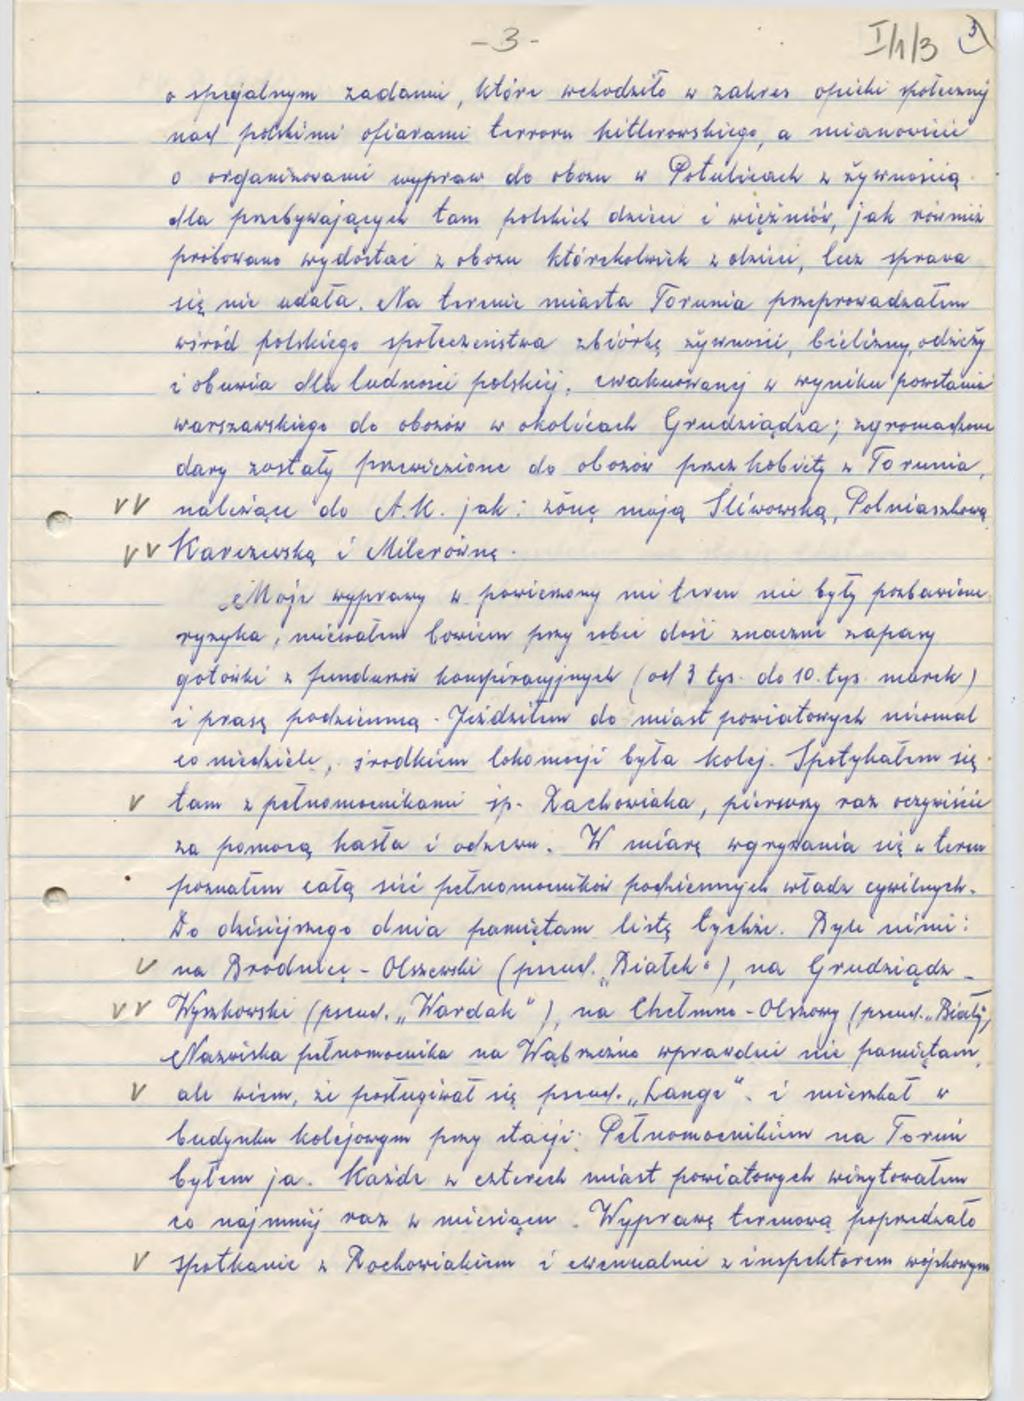 - 3 -
I/1/3
3
o specjalnym zadaniu, które wchodziło w zakres opieki społecznej
nad polskimi ofiarami terroru hitlerowskiego, a mianowicie
o organizowaniu wypraw do obozu w Potulicach z żywnością
dla przebywających tam polskich dzieci i więźniów, jak również
próbowano wydostać z obozu którekolwiek z dzieci, lecz sprawa
się nie udała. Na terenie miasta Torunia przeprowadzałem
wśród polskiego społeczeństwa zbiórkę żywności, bielizny, odzieży
i obuwia dla ludności polskiej, ewakuowanej w wyniku powstania
warszawskiego do obozów w okolicach Grudziądza; zgromadzone
dary zostały przewiezione do obozów przez kobiety z Torunia,
VV należące do A.K. jak: żonę moją Śliwowską, Polniaszkową
VV Karczewską i Milerównę.
Moje wyprawy w powierzony mi teren nie były pozbawione
ryzyka, miewałem bowiem przy sobie dość znaczne zapasy
gotówki z funduszów konspiracyjnych (od 3 tys. do 10. tys. marek)
i prasę podziemną. Jeździłem do miast powiatowych nieomal
co niedzielę, środkiem lokomocji była kolej. Spotykałem się
V tam z pełnomocnikami śp. Rachowiaka, pierwszy raz oczywiście
za pomocą hasła i odzewu. W miarę wgryzania się w teren
poznałem całą sieć pełnomocników podziemnych władz cywilnych.
Do dzisiejszego dnia pamiętam listę tychże. Byli nimi:
V na Brodnicę - Olszewski (pseud. "Białek"), na Grudziądz -
VV Wyszkowski (pseud. "Wardak"), na Chełmno - Olszowy (pseud. "Biały",
Nazwiska pełnomocnika na Wąbrzeźno wprawdzie nie pamiętam,
V ale wiem, że posługiwał się pseud. "Lange". i mieszkał w
budynku kolejowym przy stacji. Pełnomocnikiem na Toruń
byłem ja. Każde z czterech miast powiatowych wizytowałem
co najmniej raz w miesiącu. Wyprawę terenową poprzedzało
V spotkanie z Rochowiakiem i ewentualnie z inspektorem wojskowym